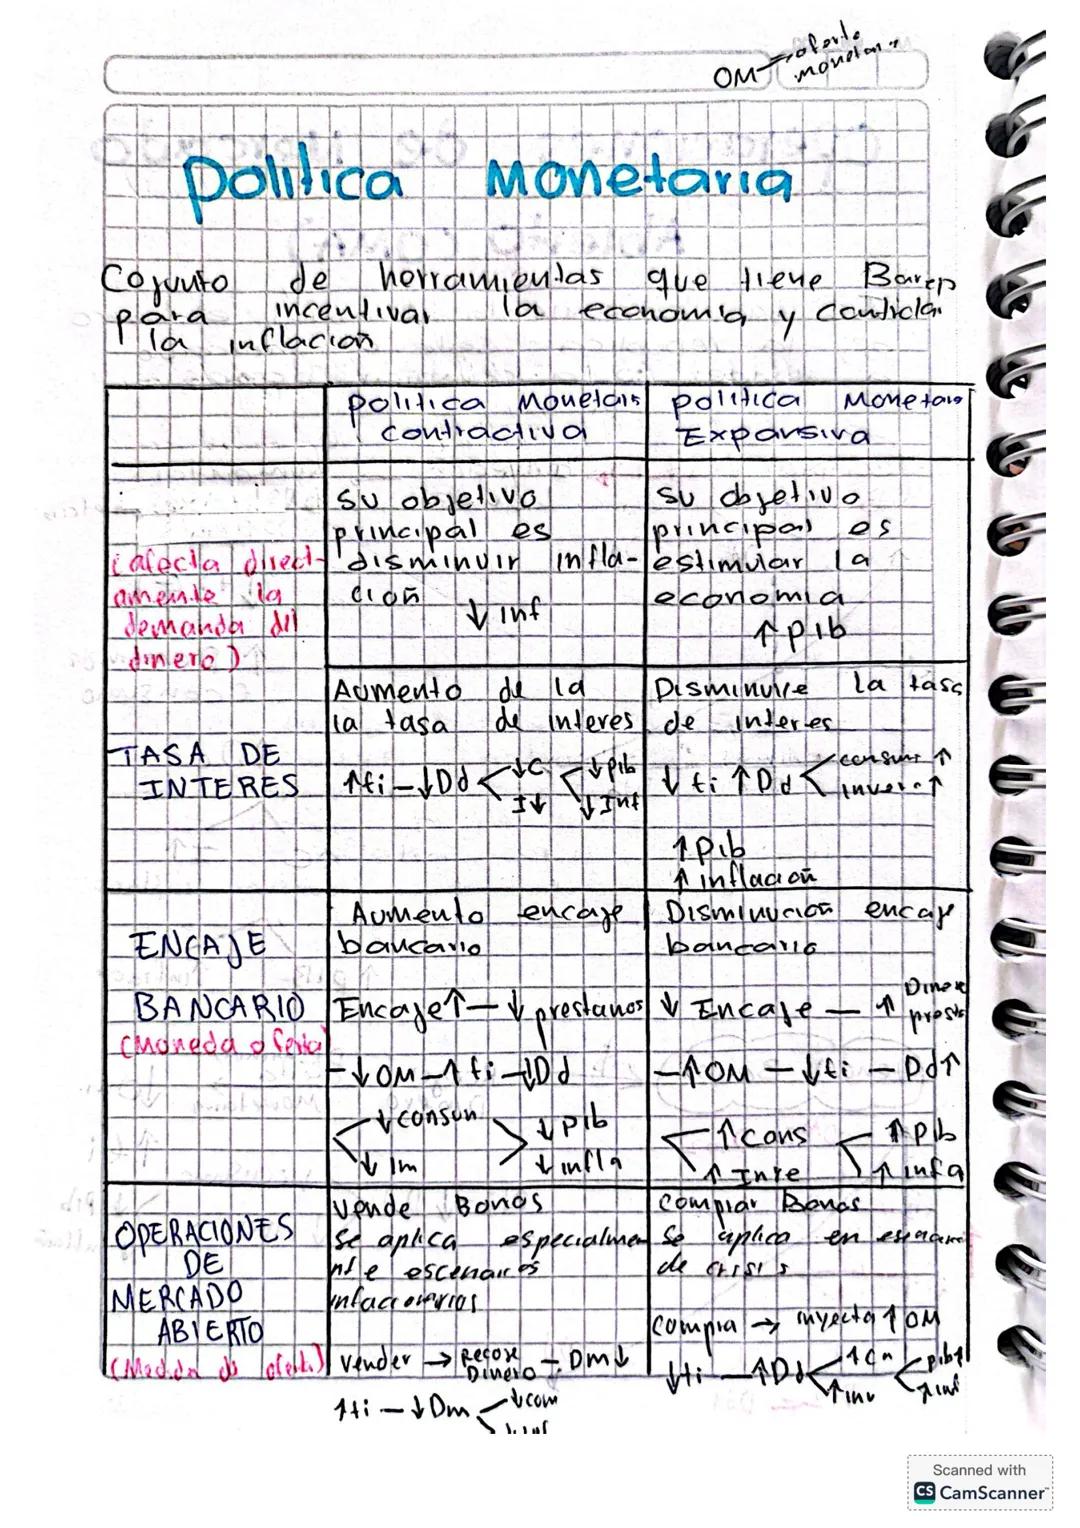 OM → oferta
monetar.
Politica Monetaria
Cojunto de herramientas que tiene Banrep
para incentivar la economia y controlar
la inflacion
politica Monetaria
contractiva
politica Monetaria
Expansiva
(afecta direct-
amente la
demanda del
dinero)
su objetivo
principal es
disminuir infla-
cion
↓ inf
su objetivo
principal es
estimular la
economia
↑ pib
TASA DE
INTERES
Aumento de la
la tasa de interes
↑ti — ↓Dd < ↓C < ↓pib
I↓ ↓Inf
Disminuire la tasa
de interes
↓ ti ↑ Dd < consum ↑
inver. ↑
↑ pib
↑ inflacion
ENCAJE
BANCARIO
(Moneda oferta)
Aumento encaje
bancario
Encaje↑ — ↓ prestamos
— ↓ OM — ↑ ti — ↓Dd
< ↓ consun > ↓ pib
↓ Im ↓ infla
Disminucion encaje
bancario
↓ Encaje — ↑ Dinero
prests
— ↑OM — ↓ti — Dd↑
< ↑ cons < ↑ pib
↑ Inve ↑ infa
OPERACIONES
DE
MERCADO
ABIERTO
Vende Bonos
Se aplica especialmen
escenarios
vender → Recoje
Dinero — Dm↓
↑ti — ↓Dm < ↓com
↓inf
comprar Bonos
Se aplica en
de crisis
compra → inyecta ↑ OM
↓ti — ↑Dd < ↑Cn < pib↑
↑inv ↑inf
Scanned with
CS CamScanner